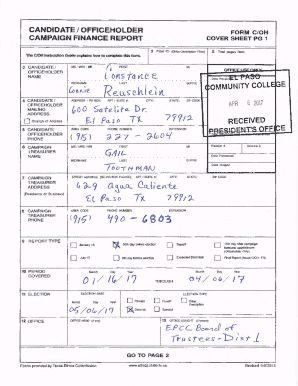 CANDIDATE / OFFICEHOLDER
CAMPAIGN FINANCE REPORT
FORM C/OH
COVER SHEET PG 1
The C/OH Instruction Guide explains how to complete this form.
2 Total pages filed:
3 CANDIDATE / OFFICEHOLDER NAME
MS / MRS / MR FIRST MI
Constance
NICKNAME LAST SUFFIX
Connie Reuschlein
OFFICE USE ONLY
EL PASO
COMMUNITY COLLEGE
APR 6 2017
RECEIVED
PRESIDENT'S OFFICE
4 CANDIDATE / OFFICEHOLDER MAILING ADDRESS
Change of Address
ADDRESS / PO BOX; APT / SUITE #; CITY; STATE; ZIP CODE
600 Satelite Dr.
El Paso TX 79912
5 CANDIDATE / OFFICEHOLDER PHONE
AREA CODE PHONE NUMBER EXTENSION
(915) 227-2604
6 CAMPAIGN TREASURER NAME
MS / MRS / MR FIRST MI
GAIL
NICKNAME LAST SUFFIX
TOOTHMAN
Date Processed
Date Imaged
7 CAMPAIGN TREASURER ADDRESS
(Residence or Business)
629 Agua Caliente
El Paso Tx 79912
8 CAMPAIGN TREASURER PHONE
AREA CODE PHONE NUMBER EXTENSION
(915) 490-6803
9 REPORT TYPE
January 15
30th day before election
Runoff
15th day after campaign treasurer appointment (Officeholder Only)
July 15
8th day before election
Final Report (Attach C/OH - FR)
10 PERIOD COVERED
Month Day Year
01/16/17 THROUGH 04/06/17
11 ELECTION
ELECTION DATE
ELECTION TYPE
Month Day Year
05/06/17
Primary
Runoff
Other Description
General
Special
12 OFFICE
OFFICE HELD (if any)
13 OFFICE SOUGHT (if known)
EPCC Board of
Trustees-Dist 1
GO TO PAGE 2
Forms provided by Texas Ethics Commission
www.ethics.state.tx.us